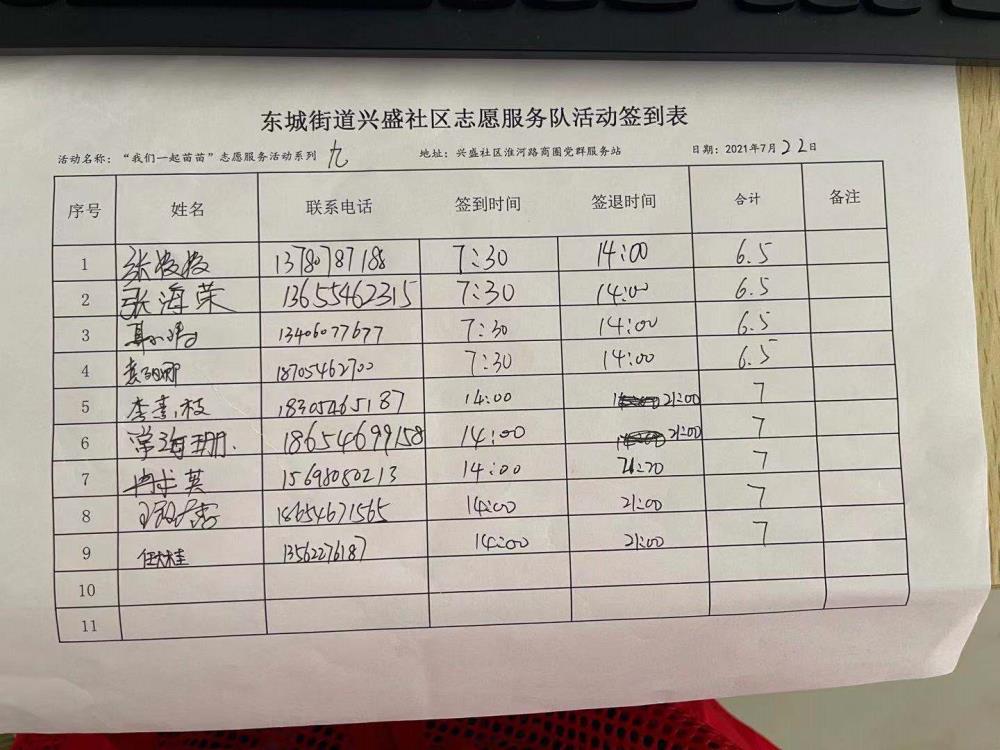 东城街道兴盛社区志愿服务队活动签到表
活动名称：“我们一起苗苗”志愿服务活动系列 九 地址：兴盛社区淮河路商圈党群服务站 日期：2021年7月22日
序号 姓名 联系电话 签到时间 签退时间 合计 备注
1 张 13780787188 7:30 14:00 6.5
2 张海荣 13655462315 7:30 14:00 6.5
3 13406077677 7:30 14:00 6.5
4 袁 18705462700 7:30 14:00 6.5
5 李 枝 18305465187 14:00 21:00 7
6 常海珊. 18654699158 14:00 21:00 7
7 英 15698080213 14:00 7
8 18654671565 14:00 21:00 7
9 任桂 13562276187 14:00 21:00 7
10
11